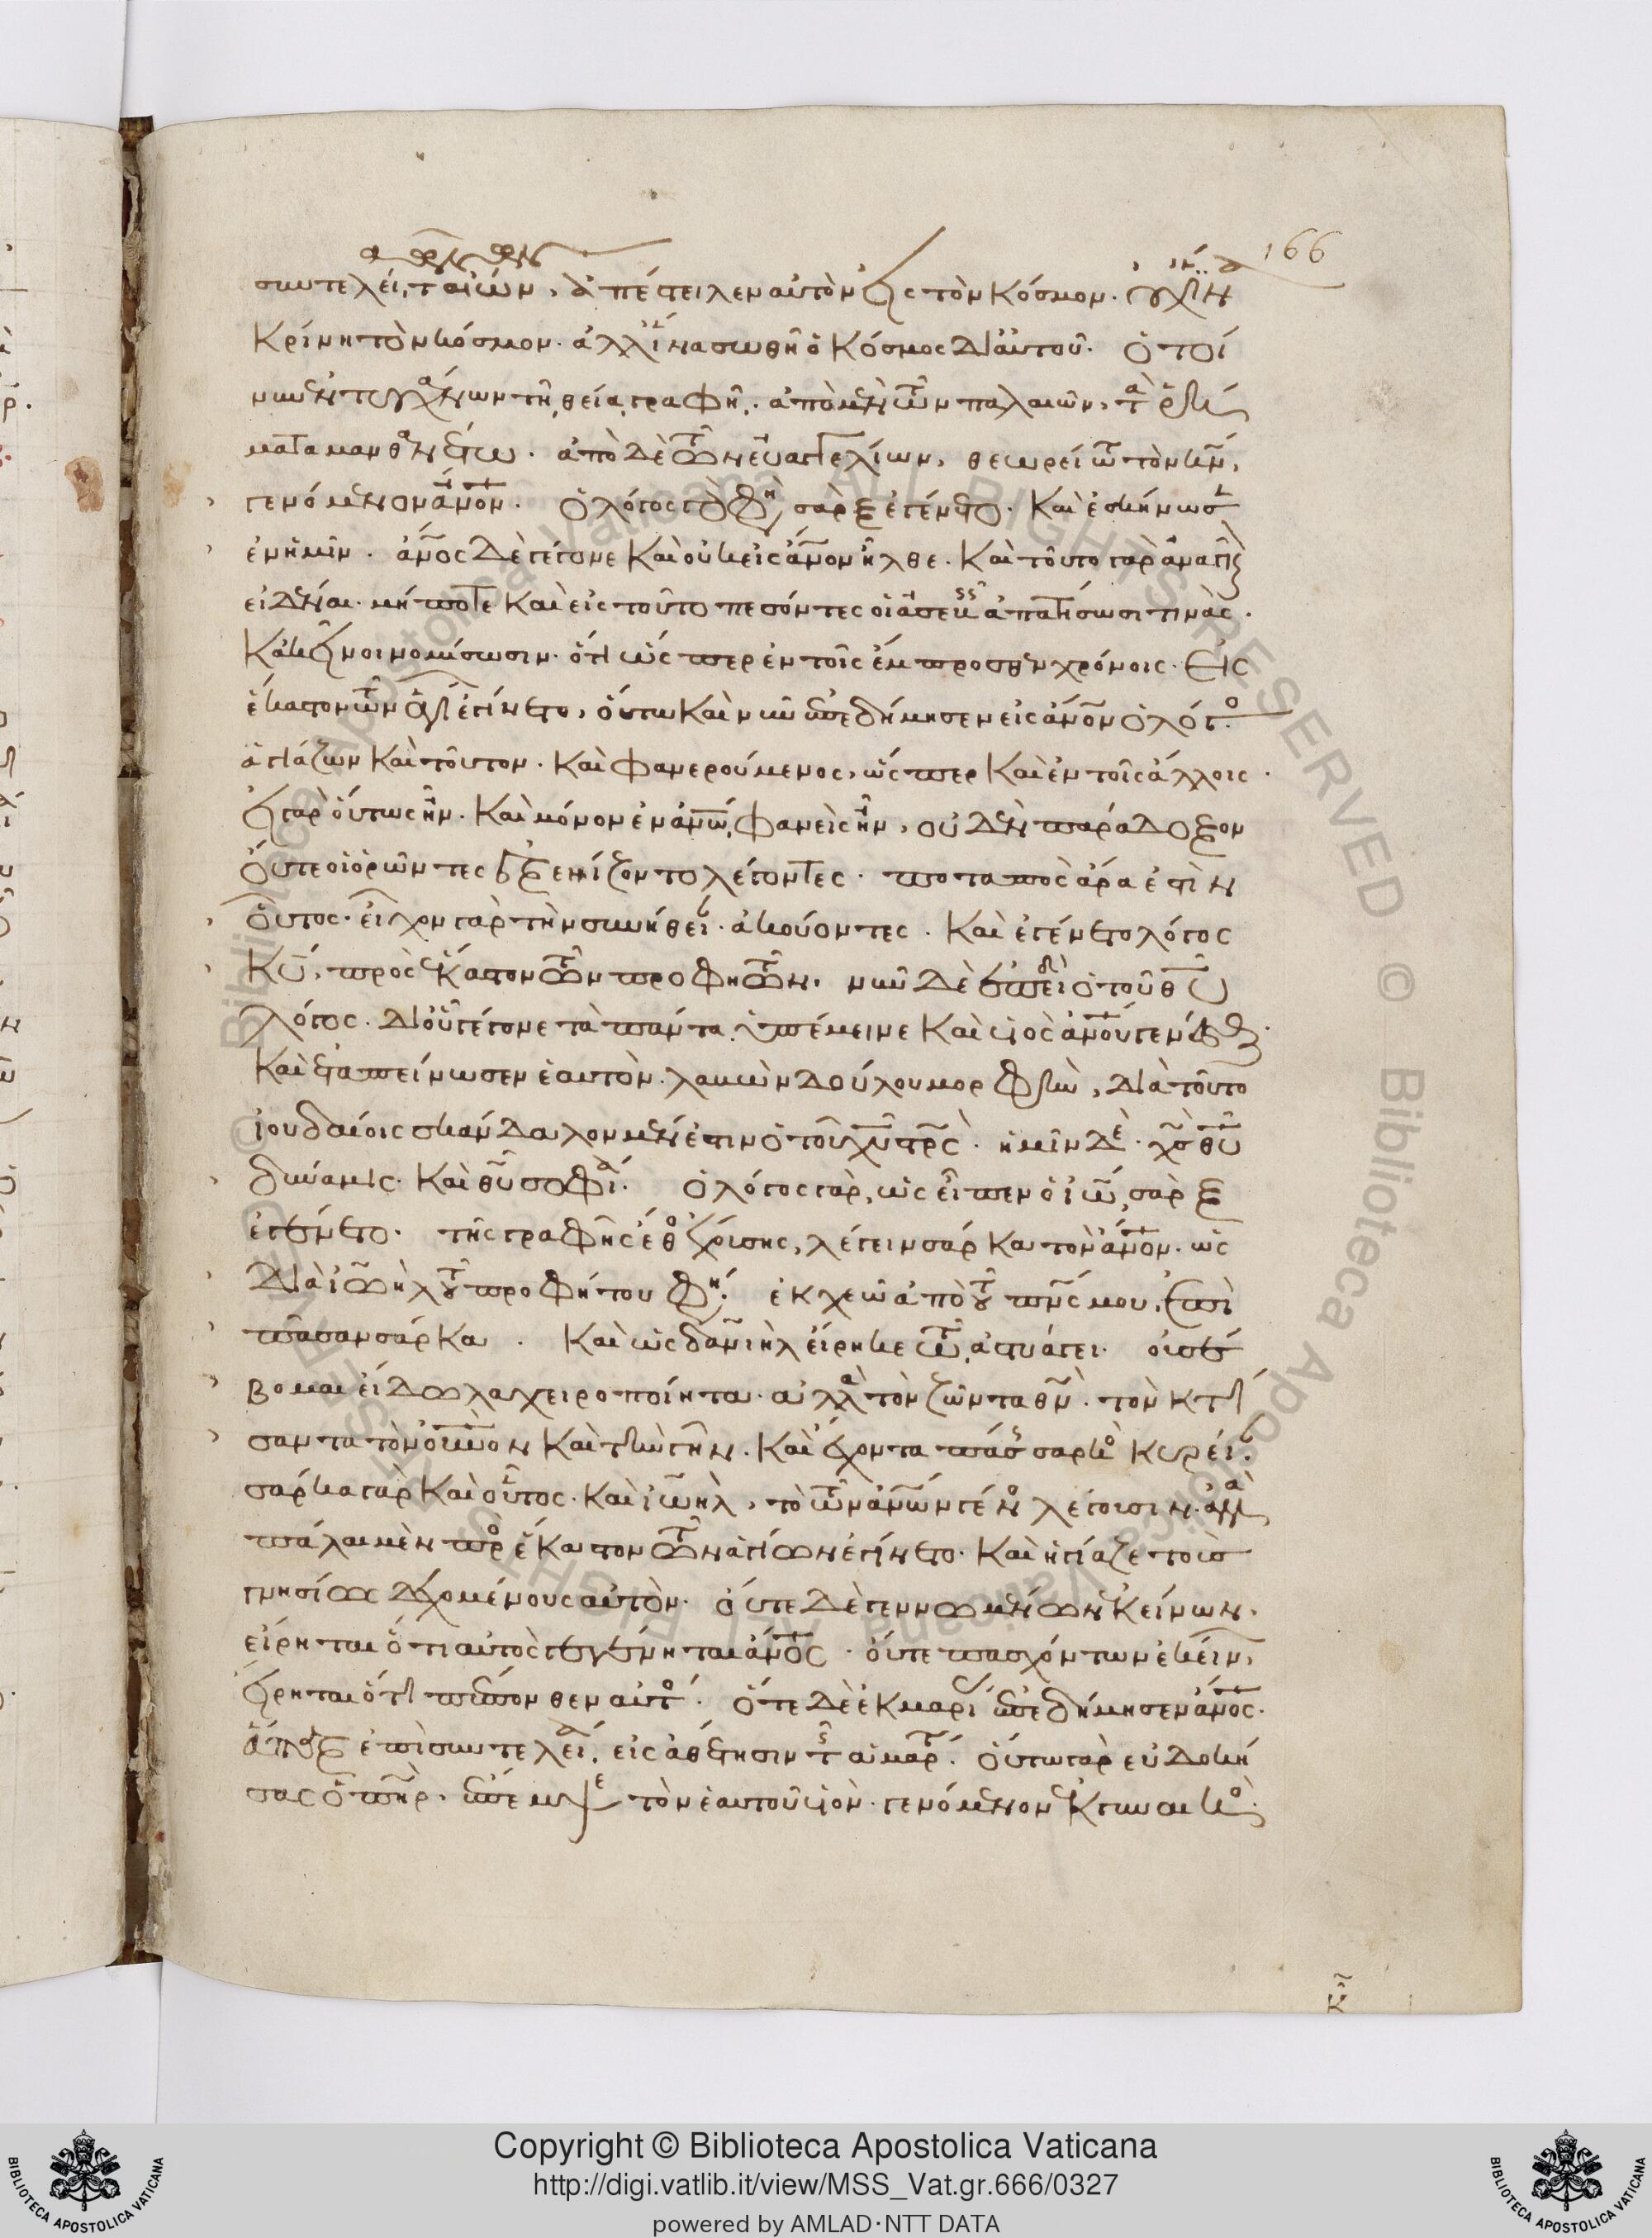 συντελεία τ αἰώνων, ἀπέστειλεν αὐτὸν εἰς τὸν κόσμον. οὐχ ἵνα
κρίνη τὸν κόσμον. ἀλλ' ἵνα σωθῆ ὁ κόσμος δι' αὐτοῦ. ὁ τοί
νυν ἐντυγχάνων τῆ θεία γραφῆ. ἀπὸ μὲν τῶν παλαιῶν, τὰ ῥή
ματα μανθανέτω. ἀπὸ δὲ τῶν εὐαγγελίων, θεωρείτω τὸν κν,
γενόμενον ἄνον. ὁ λόγος γὰρ φη, σὰρξ ἐγένετο. καὶ ἐσκήνωσεν
ἐν ἡμῖν. ἄνος δὲ γέγονε καὶ οὐκ εἰς ἄνον ἦλθε. καὶ τοῦτο γὰρ ἀναγκαῖον
εἰδέναι. μήποτε καὶ εἰς τοῦτο πεσόντες οἱ ἀσεβεῖς ἀπατήσωσι τινὰς.
κἀκεῖνοι νομίσωσιν. ὅτι ὥσπερ ἐν τοῖς ἔμπροσθεν χρόνοις. εἰς
ἕκαστον τῶν ἁγίων ἐγίνετο, οὕτω καὶ νῦν ἐπεδήμησεν εἰς ἄνον ὁ λόγος
ἁγιάζων καὶ τοῦτον. καὶ φανερούμενος, ὥσπερ καὶ ἐν τοῖς ἄλλοις.
εἰ γὰρ οὕτως ἦν. καὶ μόνον ἐν ἀνω φανεὶς ἦν, οὐδὲν παράδοξον
οὔτε οἱ ὁρῶντες ἐξενίζοντο λέγοντες. ποταπὸς ἄρα ἐστὶν
οὗτος. εἶχον γὰρ τὴν συνήθειαν ἀκούοντες. καὶ ἐγένετο λόγος
κυ, πρὸς ἕκαστον τῶν προφητῶν. νῦν δὲ ἐπειδὴ ὁ τοῦ θυ
λόγος. δι' οὗ γέγονε τὰ πάντα. ὑπέμεινε καὶ υἱὸς ἀνου γενέσθαι.
καὶ ἐταπείνωσεν ἑαυτὸν. λαβὼν δούλου μορφὴν, διὰ τοῦτο
ἰουδαίοις σκάνδαλον μέν ἐστιν ὁ τοῦ χυ στρς. ἡμῖν δὲ. χς θυ
δύναμις. καὶ θυ σοφία. ὁ λόγος γὰρ, ὡς εἶπεν ὁ ἰω, σὰρξ
ἐγένετο. τῆς γραφῆς ἔθος ἐχούσης, λέγειν σάρκα τὸν ἄνον. ὡς
διὰ ἰωὴλ τοῦ προφήτου φη. ἐκχεῶ ἀπὸ τοῦ πνς μου, ἐπὶ
πᾶσαν σάρκα. καὶ ὡς δανιὴλ εἴρηκε τῶ ἀστυάγει. οὐ σέ
βομαι εἴδωλα χειροποίητα. ἀλλὰ τὸν ζῶντα θν. τὸν κτί
σαντα τὸν οὐνον καὶ τὴν γῆν. καὶ ἔχοντα πάσης σαρκὸς κυρείαν.
σάρκα γὰρ καὶ οὗτος. καὶ ἰωὴλ, τὸ τῶν ἀνων γένος λέγουσιν. ἀλλὰ
πάλαι μὲν πρὸς ἕκαστον τῶν ἁγίων ἐγίνετο. καὶ ἡγίαζε τοὺς
γνησίως δεχομένους αὐτὸν. οὔτε δὲ γεννωμένων ἐκείνων.
εἴρηται ὅτι αὐτὸς γεγένηται ἄνος. οὔτε πασχόντων ἐκείνων,
εἴρηται ὅτι πέπονθεν αὐτός. ὅτε δὲ ἐκ μαρίας ἐπεδήμησεν ἄνος.
ἅπαξ ἐπὶ συντελεία. εἰς ἀθέτησιν τῆς ἁμαρτ. οὕτω γὰρ εὐδοκή
σας ὁ πηρ. ἔπεμψε τὸν ἑαυτοῦ υἱὸν. γενόμενον ἐκ γυναικός.
166
Copyright © Biblioteca Apostolica Vaticana
http://digi.vatlib.it/view/MSS_Vat.gr.666/0327
powered by AMLAD·NTT DATA